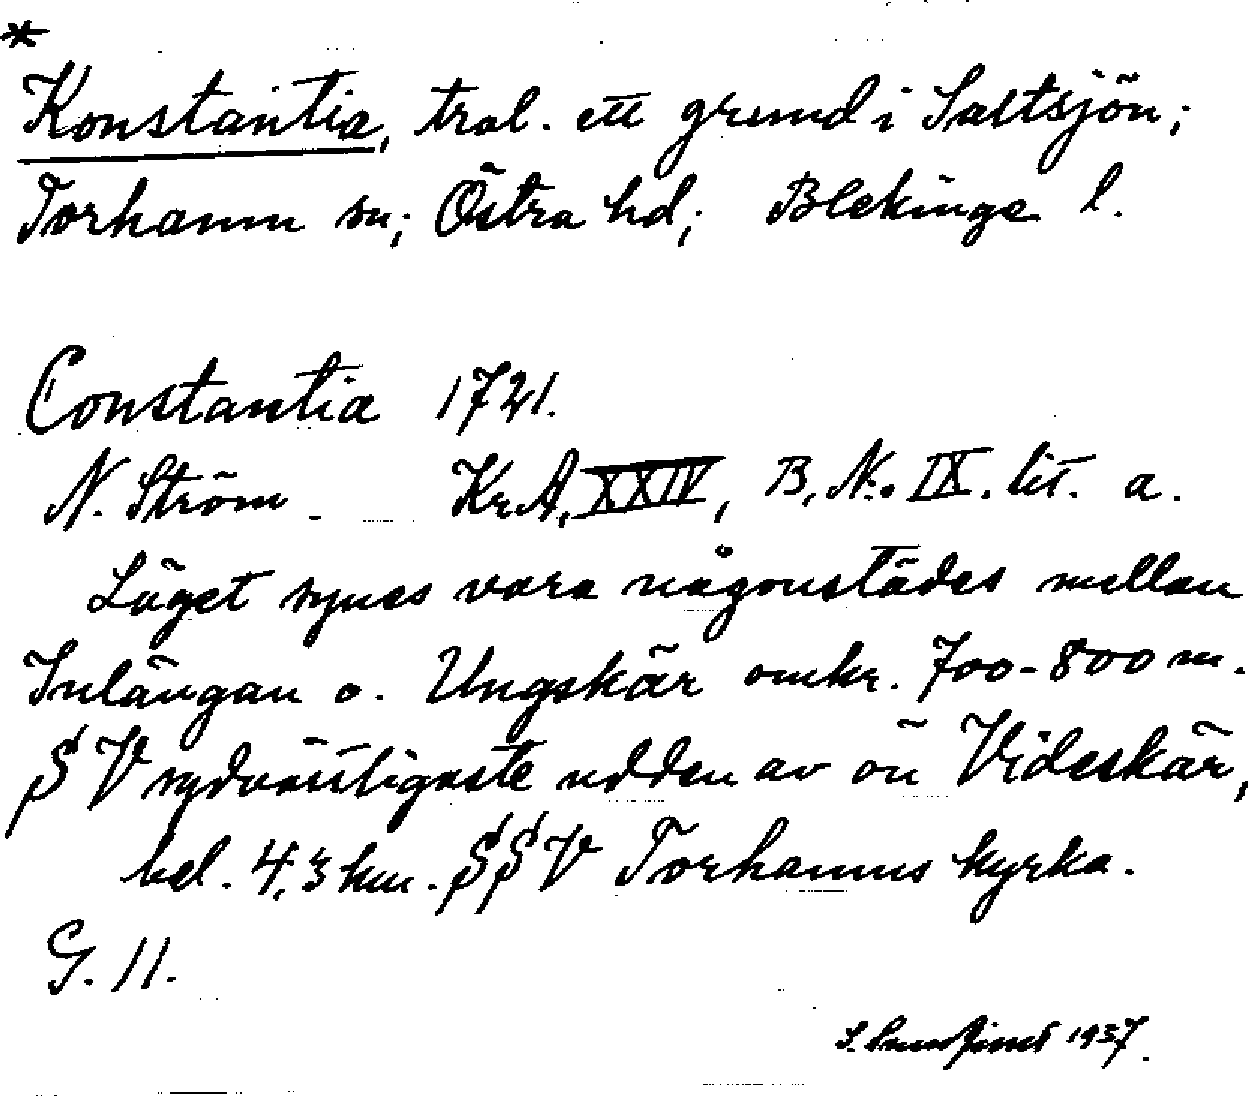 *
Konstantia, trol. ett grund i Saltsjön;
Torhamn sn; Östra hd; Blekinge l.
Constantia 1721.
N. Ström. Kr.A, XXIV, B, N:o IX. lit. a.
Läget synes vara någonstädes mellan
Inlängan o. Ungskär omkr. 700-800 m.
SV sydvästligaste udden av ön Videskär,
bel. 4,3 km. SSV Torhamns kyrka.
G. 11.
1937.